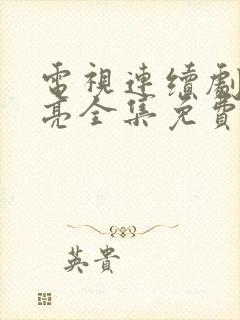 電視連續劇
亮全集免費
英貴